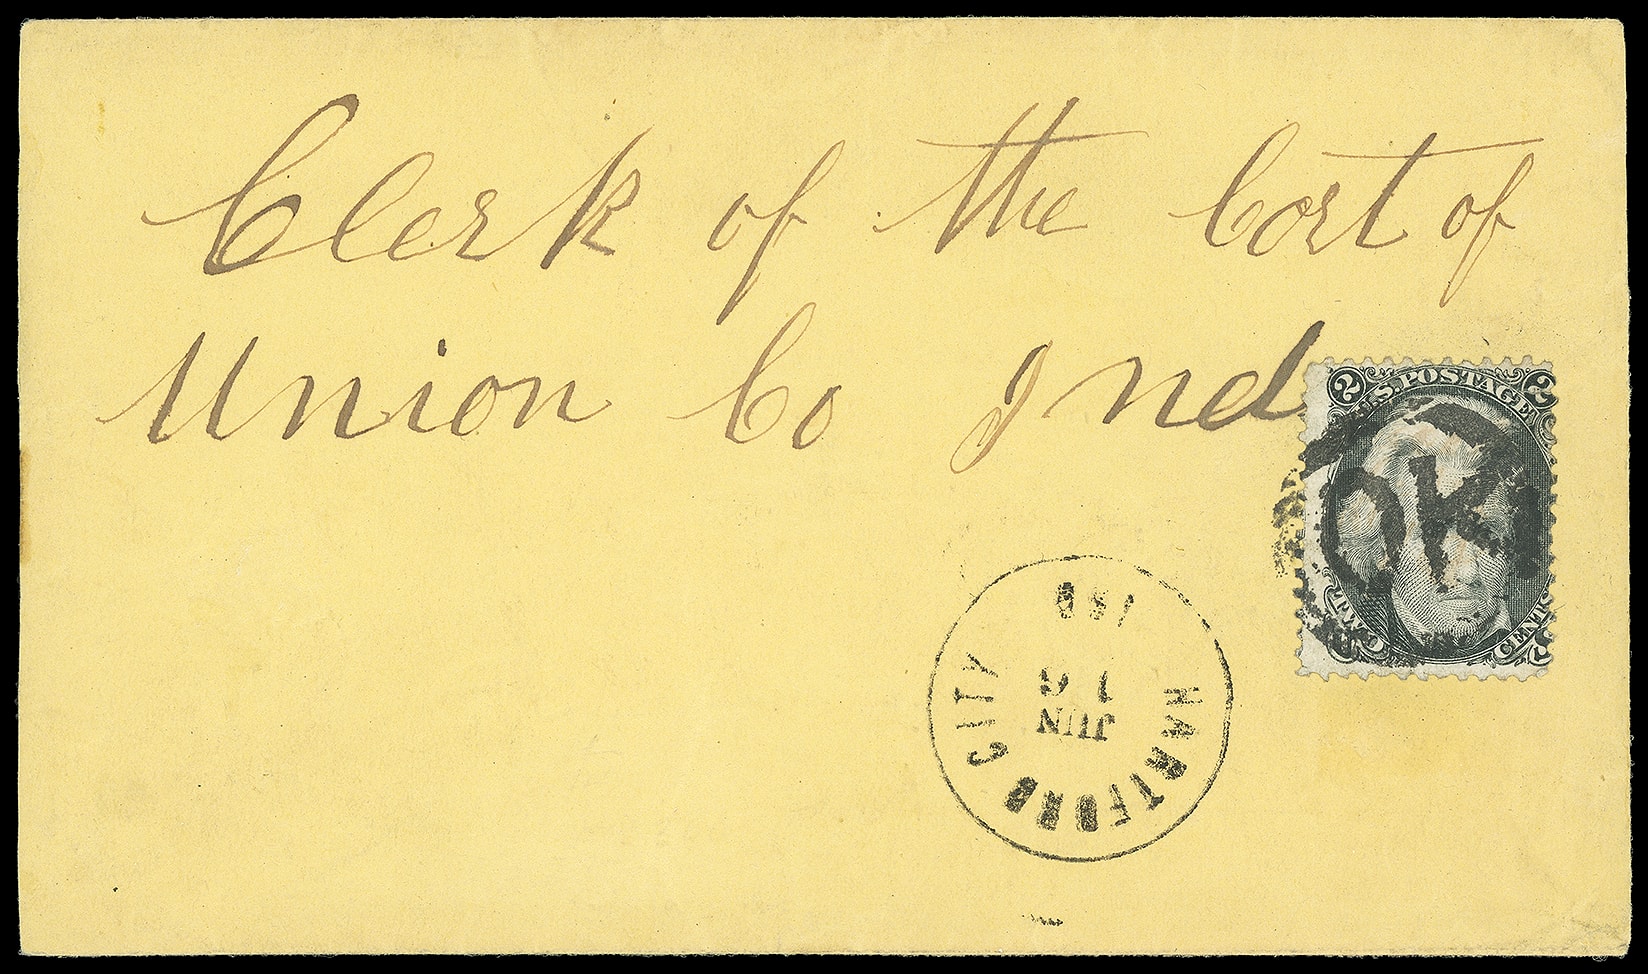 Clerk of the Cort of
Union Co Ind
2 U.S. POSTAGE 2
OK
TWO CENTS
HARTFORD CITY IND
JUN
16